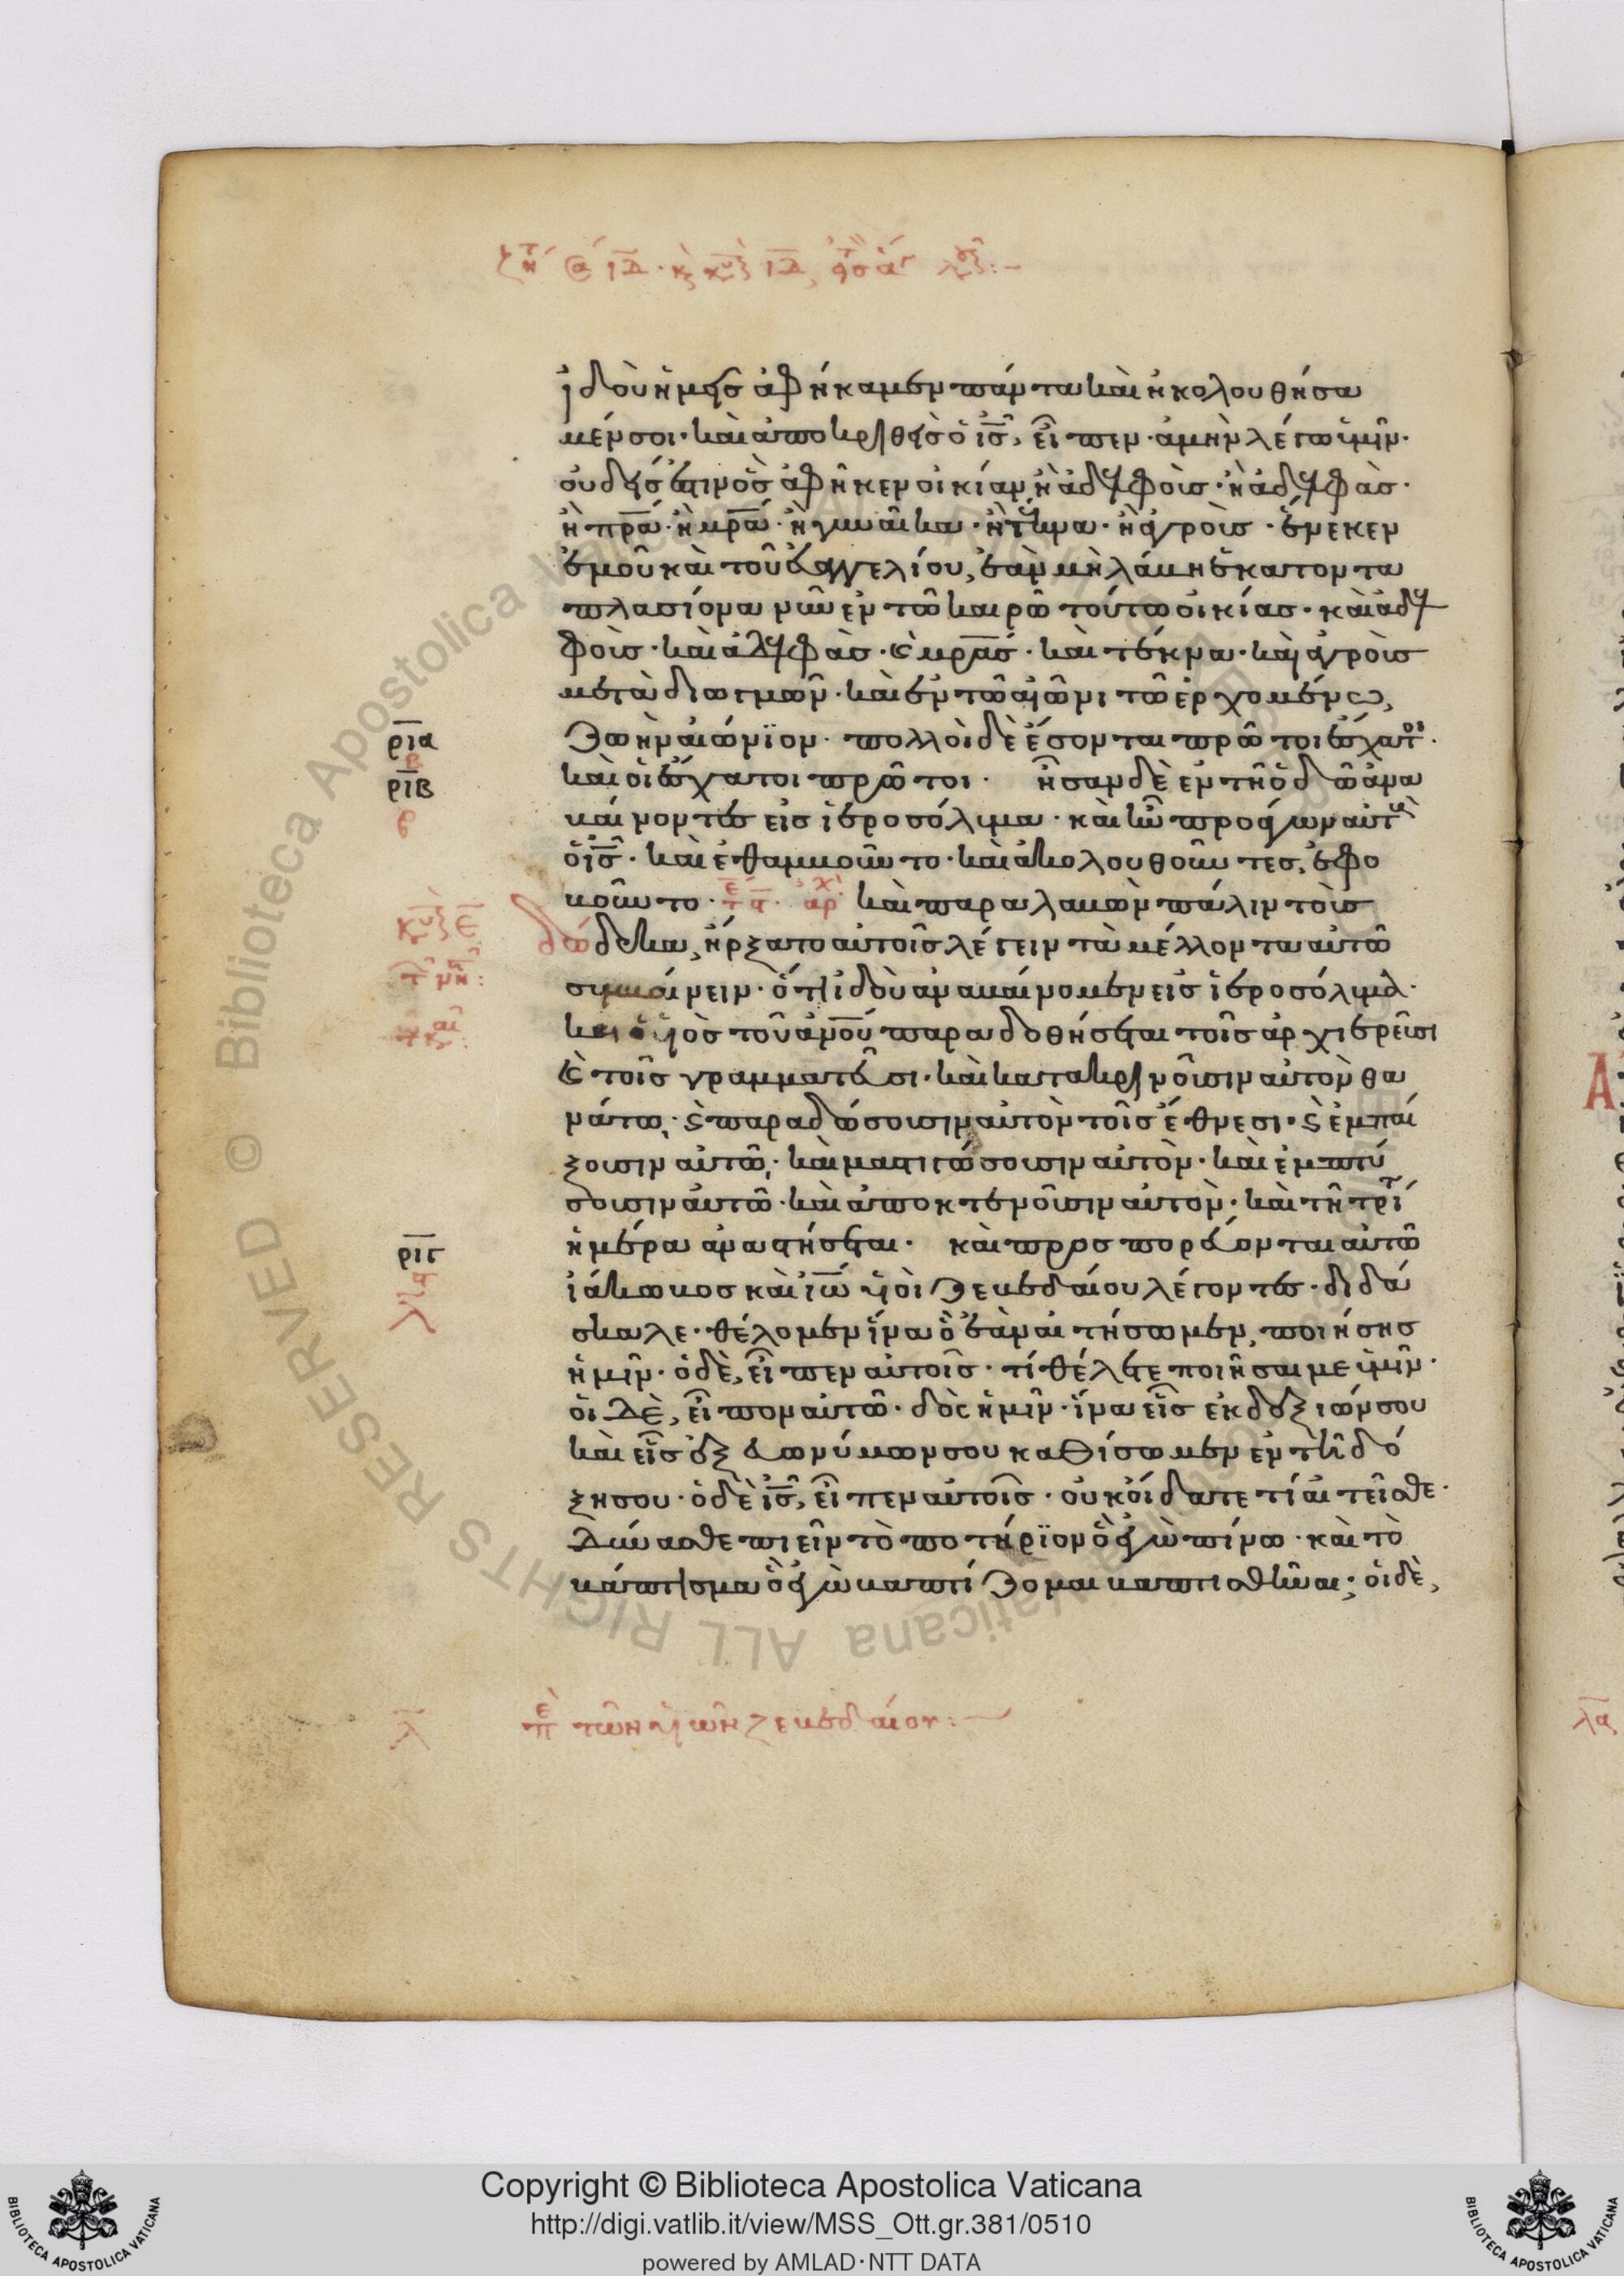 ἰδοὺ ἡμεῖς ἀφήκαμεν πάντα καὶ ἠκολουθήσα
μέν σοι· καὶ ἀποκριθεὶς ὁ ι̅ς̅, εἶπεν· ἀμὴν λέγω ὑμῖν·
οὐδείς ἐστιν ὃς ἀφῆκεν οἰκίαν ἢ ἀδελφοὺς· ἢ ἀδελφὰς·
ἢ π̅ρ̅α̅· ἢ μ̅ρ̅α̅· ἢ γυναῖκα· ἢ τέκνα· ἢ ἀγροὺς· ἕνεκεν
ἐμοῦ καὶ τοῦ εὐαγγελίου, ἐὰν μὴ λάβη ἑκατοντα
πλασίονα νῦν ἐν τῶ καιρῶ τούτω οἰκίας· καὶ ἀδελ
φοὺς· καὶ ἀδελφὰς· καὶ μ̅ρ̅α̅ς̅· καὶ τέκνα· καὶ ἀγροὺς
μετὰ διωγμῶν· καὶ ἐν τῶ αἰῶνι τῶ ἐρχομένω,
ζωὴν αἰώνϊον· πολλοὶ δὲ ἔσονται πρῶτοι ἔσχατοι·
ρ̅ι̅α̅
καὶ οἱ ἔσχατοι πρῶτοι· ἦσαν δὲ ἐν τῆ ὁδῶ ἀνα
ρ̅ι̅β̅
βαίνοντες εἰς ἱεροσόλυμα· καὶ ἦν προάγων αὐτοὺς
ὁ ι̅ς̅· καὶ ἐθαμβοῦντο· καὶ ἀκολουθοῦντες, ἐφο
βοῦντο· καὶ παραλαβὼν πάλιν τοὺς
δώδεκα, ἤρξατο αὐτοῖς λέγειν τὰ μέλλοντα αὐτῶ
συμβαίνειν· ὅτι ἰδοὺ ἀναβαίνομεν εἰς ἱεροσόλυμα·
καὶ ὁ υἱὸς τοῦ α̅ν̅ο̅υ̅ παραδοθήσεται τοῖς ἀρχιερεῦσι
καὶ τοῖς γραμματεῦσι· καὶ κατακρινοῦσιν αὐτὸν θα
νάτω, καὶ παραδώσουσιν αὐτὸν τοῖς ἔθνεσι· καὶ ἐμπαί
ξουσιν αὐτῶ, καὶ μαστιγώσουσιν αὐτὸν· καὶ ἐμπτύ
σουσιν αὐτῶ· καὶ ἀποκτενοῦσιν αὐτὸν· καὶ τῆ τρίτη
ἡμέρα ἀναστήσεται· καὶ προσπορεύονται αὐτῶ
ρ̅ι̅γ̅
ἰάκωβος καὶ ι̅ω̅ υἱοὶ ζεβεδαίου λέγοντες· διδά
σκαλε· θέλομεν ἵνα ὃ ἐὰν αἰτήσωμεν, ποιήσης
ἡμῖν· ὁ δὲ, εἶπεν αὐτοῖς· τί θέλετε ποιῆσαι με ὑμῖν·
οἱ δὲ, εἶπον αὐτῶ· δὸς ἡμῖν· ἵνα εἷς ἐκ δεξιῶν σου
καὶ εἷς ἐξ εὐωνύμων σου καθίσωμεν ἐν τῆ δό
ξη σου· ὁ δὲ ι̅ς̅, εἶπεν αὐτοῖς· οὐκ οἴδατε τί αἰτεῖσθε·
δύνασθε πιεῖν τὸ ποτήρϊον ὃ ἐγὼ πίνω· καὶ τὸ
βάπτισμα ὃ ἐγὼ βαπτίζομαι βαπτισθῆναι; οἱ δὲ,
λ̅ περὶ τῶν υἱῶν ζεβεδαίου:
λα
Copyright © Biblioteca Apostolica Vaticana
http://digi.vatlib.it/view/MSS_Ott.gr.381/0510
powered by AMLAD·NTT DATA